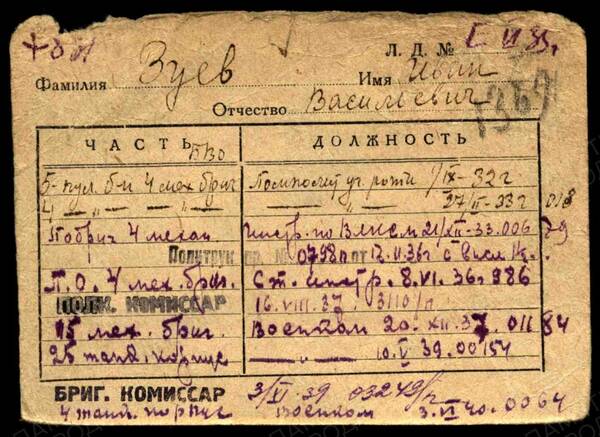 Л. Д. № 
Фамилия Зуев Имя Иван
Отчество Васильевич
1367
ЧАСТЬ ДОЛЖНОСТЬ
БВО
5 пул. б-н 4 мех бриг Помполит уч. роты 1/IX-32 г
4 — „ — „ — — „ — 27/II-33 г 018
инстр. по ВЛКСМ 21/XII-33.006
Политрук пр. № 0798п от 17.II.36г с высл.
П.О. 4 мех. бриг. Ст. инстр. 8.VI.36г 986
ПОЛК. КОМИССАР 16.VIII.37 3110/п
15 мех. бриг. Военком 20.XII.37. 01184
25 танк. корпус — „ — 10.V 39.00154
БРИГ. КОМИССАР 3/XI.39 03249/п
4 танк. корпус Военком 3.VI 40.0064